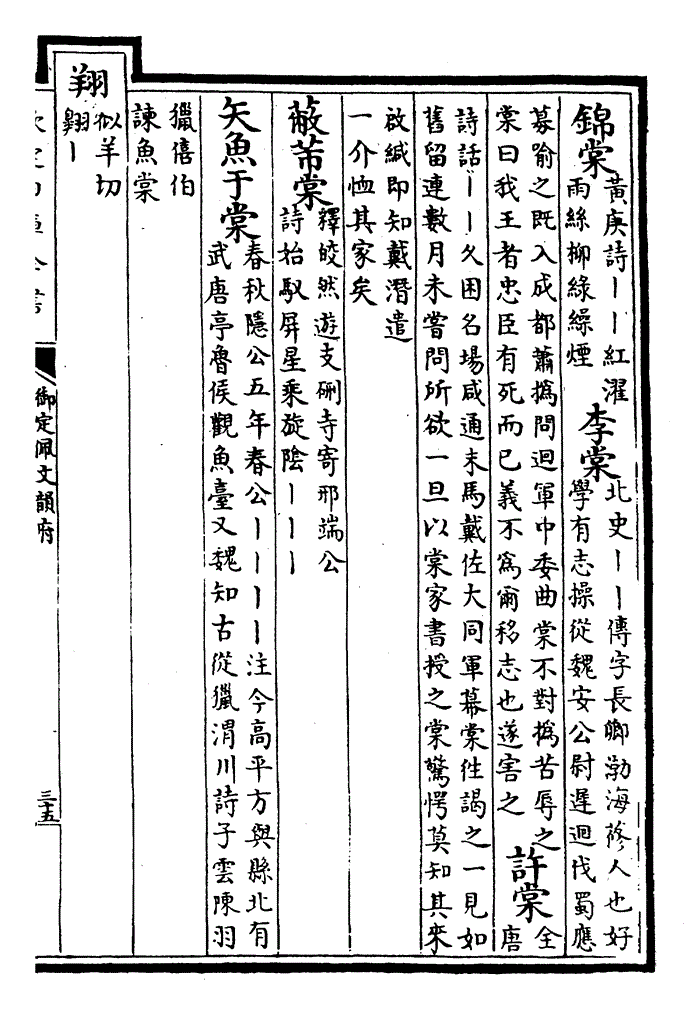 錦棠
黃庚詩〡〡紅濯
雨絲柳綠繰煙
李棠
北史〡〡傳字長卿渤海蓨人也好
學有志操從魏安公尉遲迥伐蜀應
募喻之既入成都蕭撝問迥軍中委曲棠不對撝苦辱之
棠曰我王者忠臣有死而已義不為爾移志也遂害之
許棠
全
唐
詩話〡〡久困名場咸通末馬戴佐大同軍幕棠往謁之一見如
舊留連數月未嘗問所欲一旦以棠家書授之棠驚愕莫知其來
啟緘即知戴潛遣
一介恤其家矣
蔽芾棠
釋皎然遊支硎寺寄邢端公
詩始馭屏星乘旋陰〡〡〡
矢魚于棠
春秋隱公五年春公〡〡〡〡注今高平方與縣北有
武唐亭魯侯觀魚臺又魏知古從獵渭川詩子雲陳羽
獵僖伯
諫魚棠
翔
似羊切
翺〡
欽定四庫全書
御定佩文韻府
三五